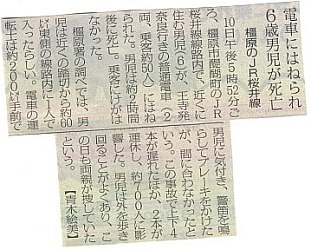 電車にはねられ
6歳男児が死亡
橿原のJR桜井線
10日午後5時52分ご
ろ、橿原市醍醐町のJR
桜井線線路内で、近くに
住む男児(6)が、王寺発
奈良行きの普通電車(2
両、乗客約50人)にはね
られた。男児は約2時間
後に死亡。乗客にけがは
なかった。
橿原署の調べでは、男
児は近くの踏切から約60
㍍東側の線路内に1人で
入ったらしい。電車の運
転士は約200㍍手前で
男児に気付き、警笛を鳴
らしてブレーキをかけた
が、間に合わなかったと
いう。この事故で上下4
本が遅れたほか、2本が
運休し、約700人に影
響した。男児は外を歩き
回ることがよくあり、こ
の日も両親が捜していた
という。【青木絵美】